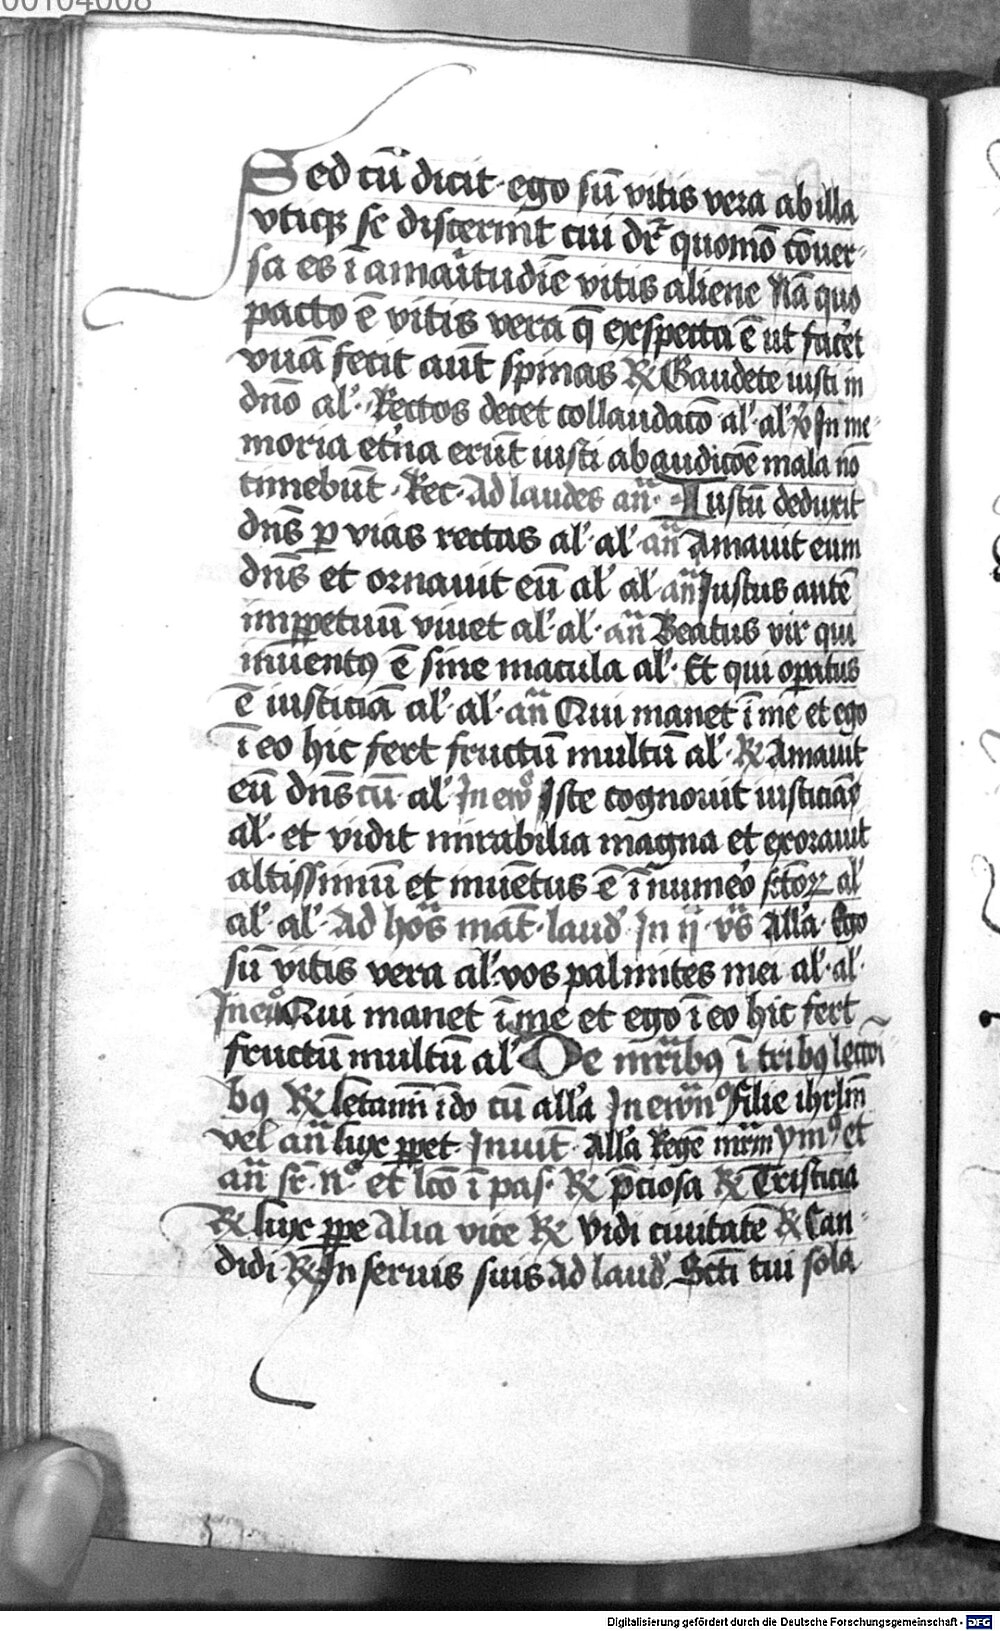 00104008
Sed cū dicit · ego sū vitis vera ab illa
vtiqꝫ se discerīnt cui dr̄ quomō cōuer-
sa es ī amaritudiē vitis aliene Nā quo
pacto ē vitis vera q̄ exspecta ē ut facēt
vuā fecit aūt spinas ℟ Gaudete iusti in
dn̄o al̓ · Rectos decet collaudacō al̓ · al̓ In me-
moria et̓na erūt iusti ab audicōe mala nō
timebūt · Rec · Ad laudes an̄ · Iustū deduxit
dn̄s ꝑ vias rectas al̓ · al̓ · an̄ Amauit eum
dn̄s et ornauit eū al̓ al̓ · an̄ Justus autē
imꝑpetuū viuet al̓ · al̓ · an̄ Beatus vir qui
inuentꝯ ē sine macula al̓ · Et qui opatus
ē iusticiā al̓ · al̓ · an̄ Qui manet ī me et ego
ī eo hic fert fructū multū al̓ · ℟ Amauit
eū dn̄s cū · al̓ In ew̄ Iste cognouit iusticiā
al̓ · et vidit mirabilia magna et exorauit
altissimū et inuētus ē ī numēo sctōꝝ al̓
al̓ · al̓ · Ad horas mat̄ · laud̓ · In ij · vs̄ All̓a · Ego
sū vitis vera al̓ · vos palmites mei al̓ · al̓ ·
In eu Qui manet ī me et ego ī eo hic fert
fructū multū al̓ De mr̄ibꝯ ī tribꝯ lectōi
bꝯ ℟ letamī ī do cū all̓a In ew̄n Filie ihrl̄m
vel an̄ lux ꝑpet · Inuit̄ · All̓a Regē mr̄m Ymꝯ et
an̄ sr̄ · nᵒ · et lcō ī pas · ℟ p̄ciosa ℟ Tristicia
℟ lux ꝑpe Alia vice ℟ Vidi ciuitatē ℟ Can-
didi ℟ In seruis suis Ad laud̓ Sctī tui sola
Digitalisierung gefördert durch die Deutsche Forschungsgemeinschaft - DFG